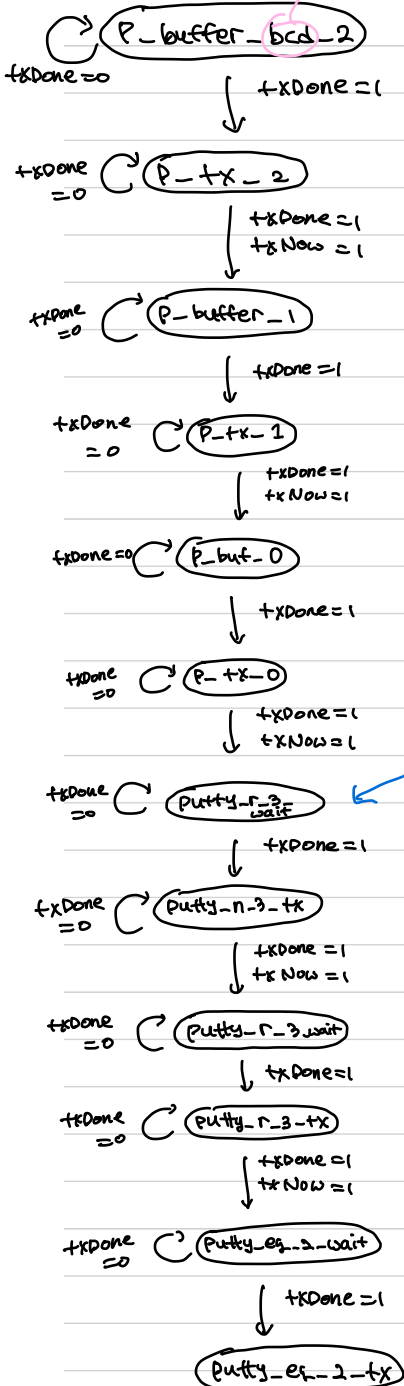 P_buffer_bcd_2
txDone=0
txDone=1
txDone
=0
P_tx_2
txDone=1
txNow=1
txDone
=0
P_buffer_1
txDone=1
txDone
=0
P_tx_1
txDone=1
txNow=1
txDone=0
P_buf_0
txDone=1
txDone
=0
P_tx_0
txDone=1
txNow=1
txDone
=0
putty_r_3_
wait
txDone=1
txDone
=0
putty_n_3_tx
txDone=1
txNow=1
txDone
=0
putty_r_3_wait
txDone=1
txDone
=0
putty_r_3_tx
txDone=1
txNow=1
txDone
=0
putty_eq_2_wait
txDone=1
putty_eq_2_tx